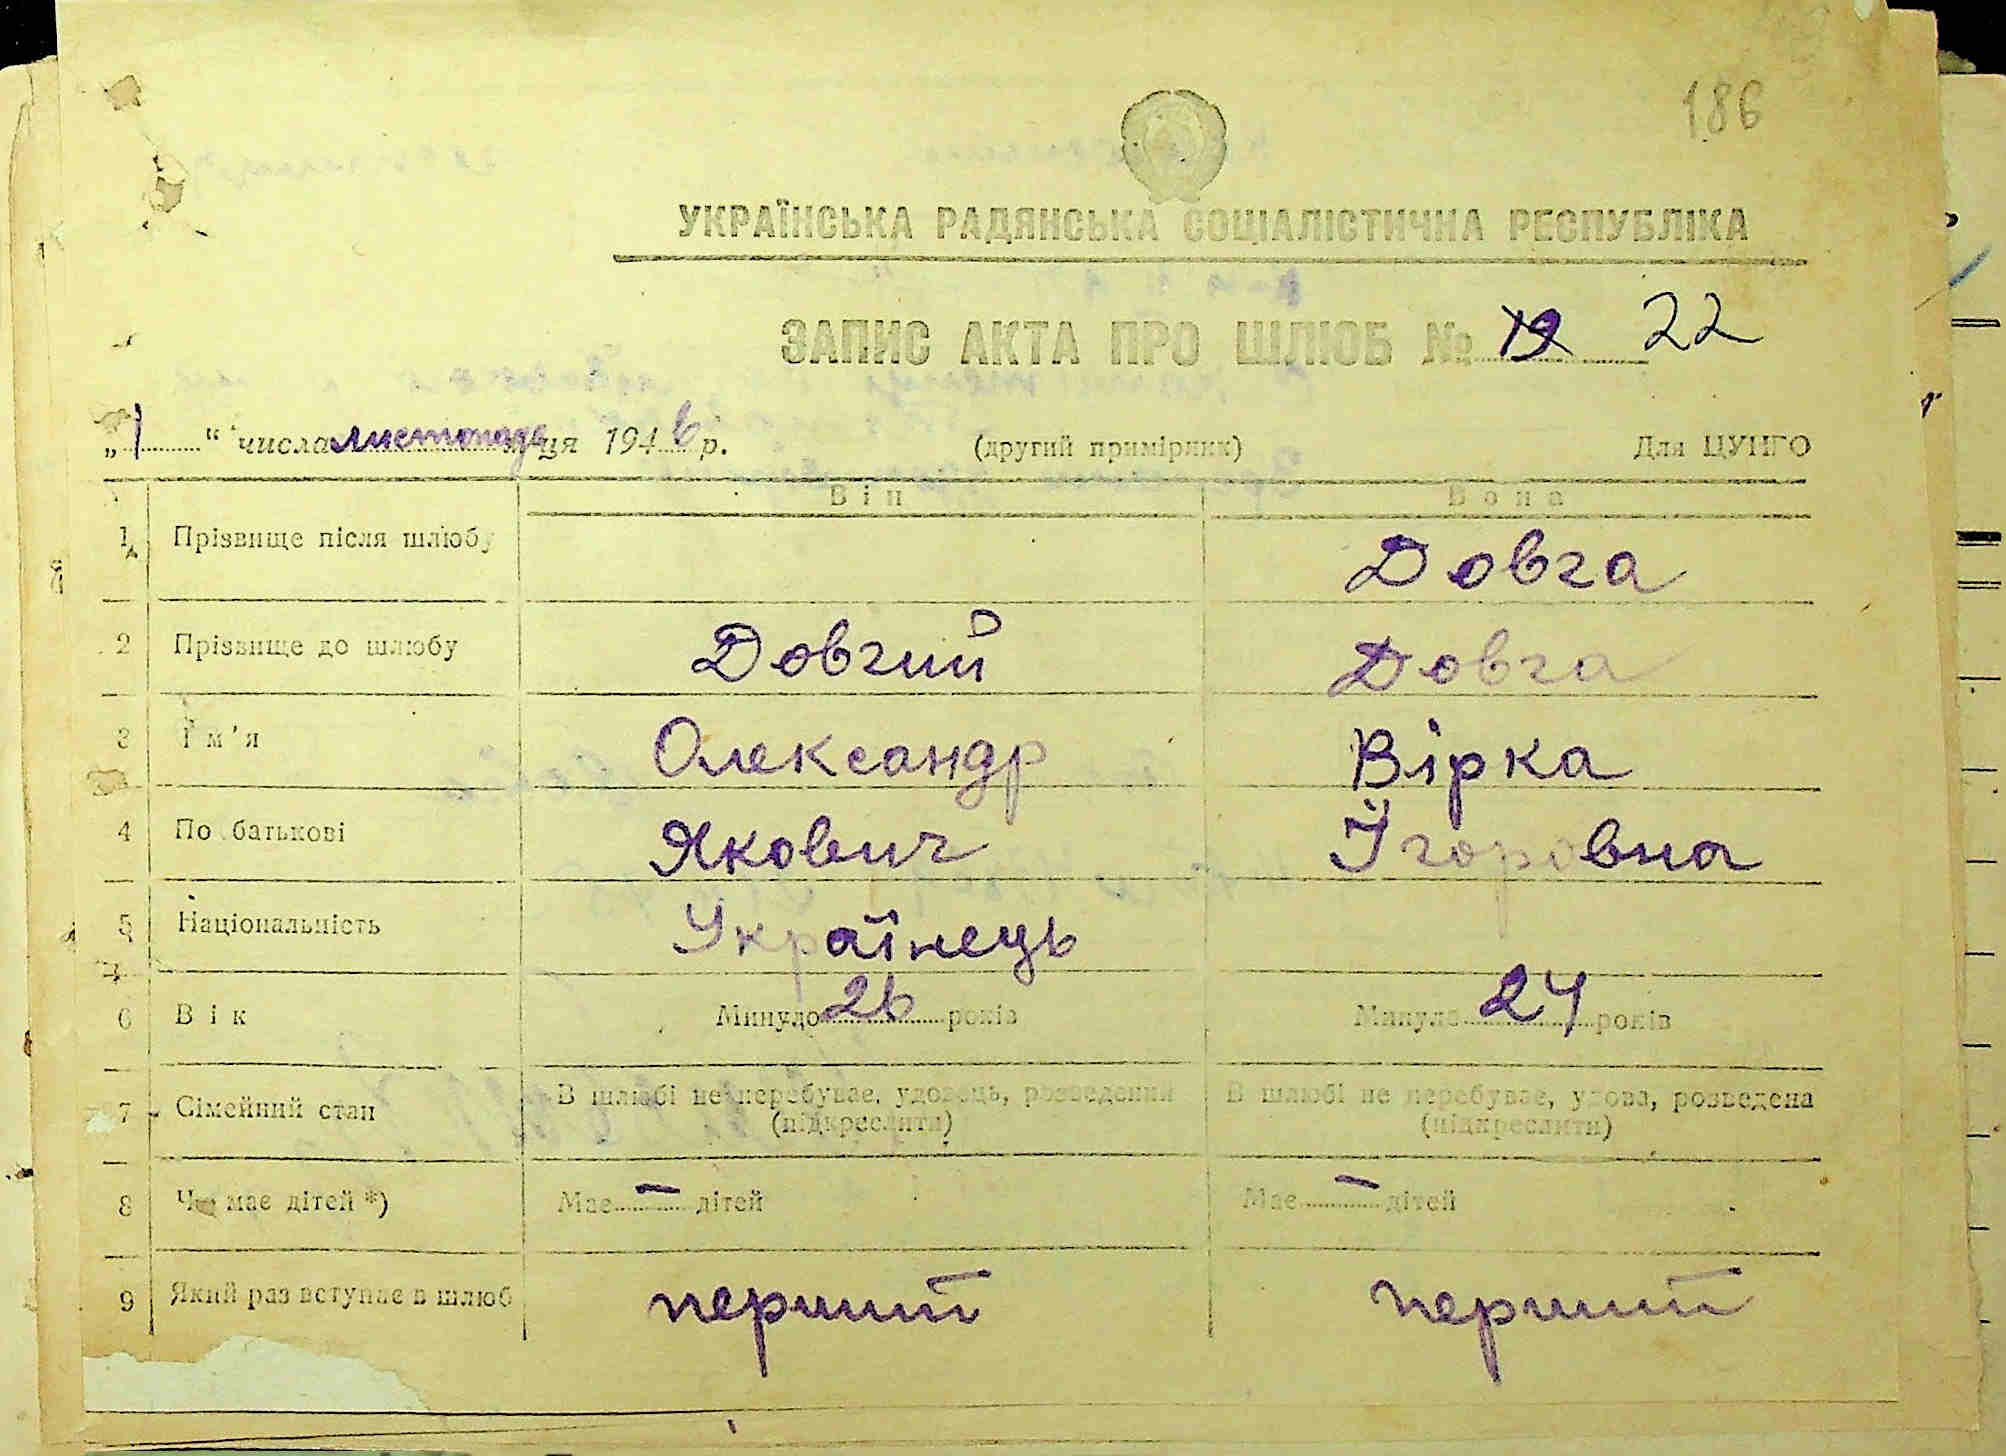 186
УКРАЇНСЬКА РАДЯНСЬКА СОЦІАЛІСТИЧНА РЕСПУБЛІКА
ЗАПИС АКТА ПРО ШЛЮБ № 19 22
„1“ числа листопада м-ця 1946 р. (другий примірник) Для ЦУНГО
Він Вона
1 Прізвище після шлюбу Довга
2 Прізвище до шлюбу Довгий Довга
3 Ім'я Олександр Вірка
4 По батькові Якович Ігоровна
5 Національність Українець
6 Вік Минуло 26 років Минуло 24 років
7 Сімейний стан В шлюбі не перебуває, удовець, розведений В шлюбі не перебуває, удова, розведена
(підкреслити) (підкреслити)
8 Чи має дітей *) Має — дітей Має — дітей
9 Який раз вступає в шлюб перший перший